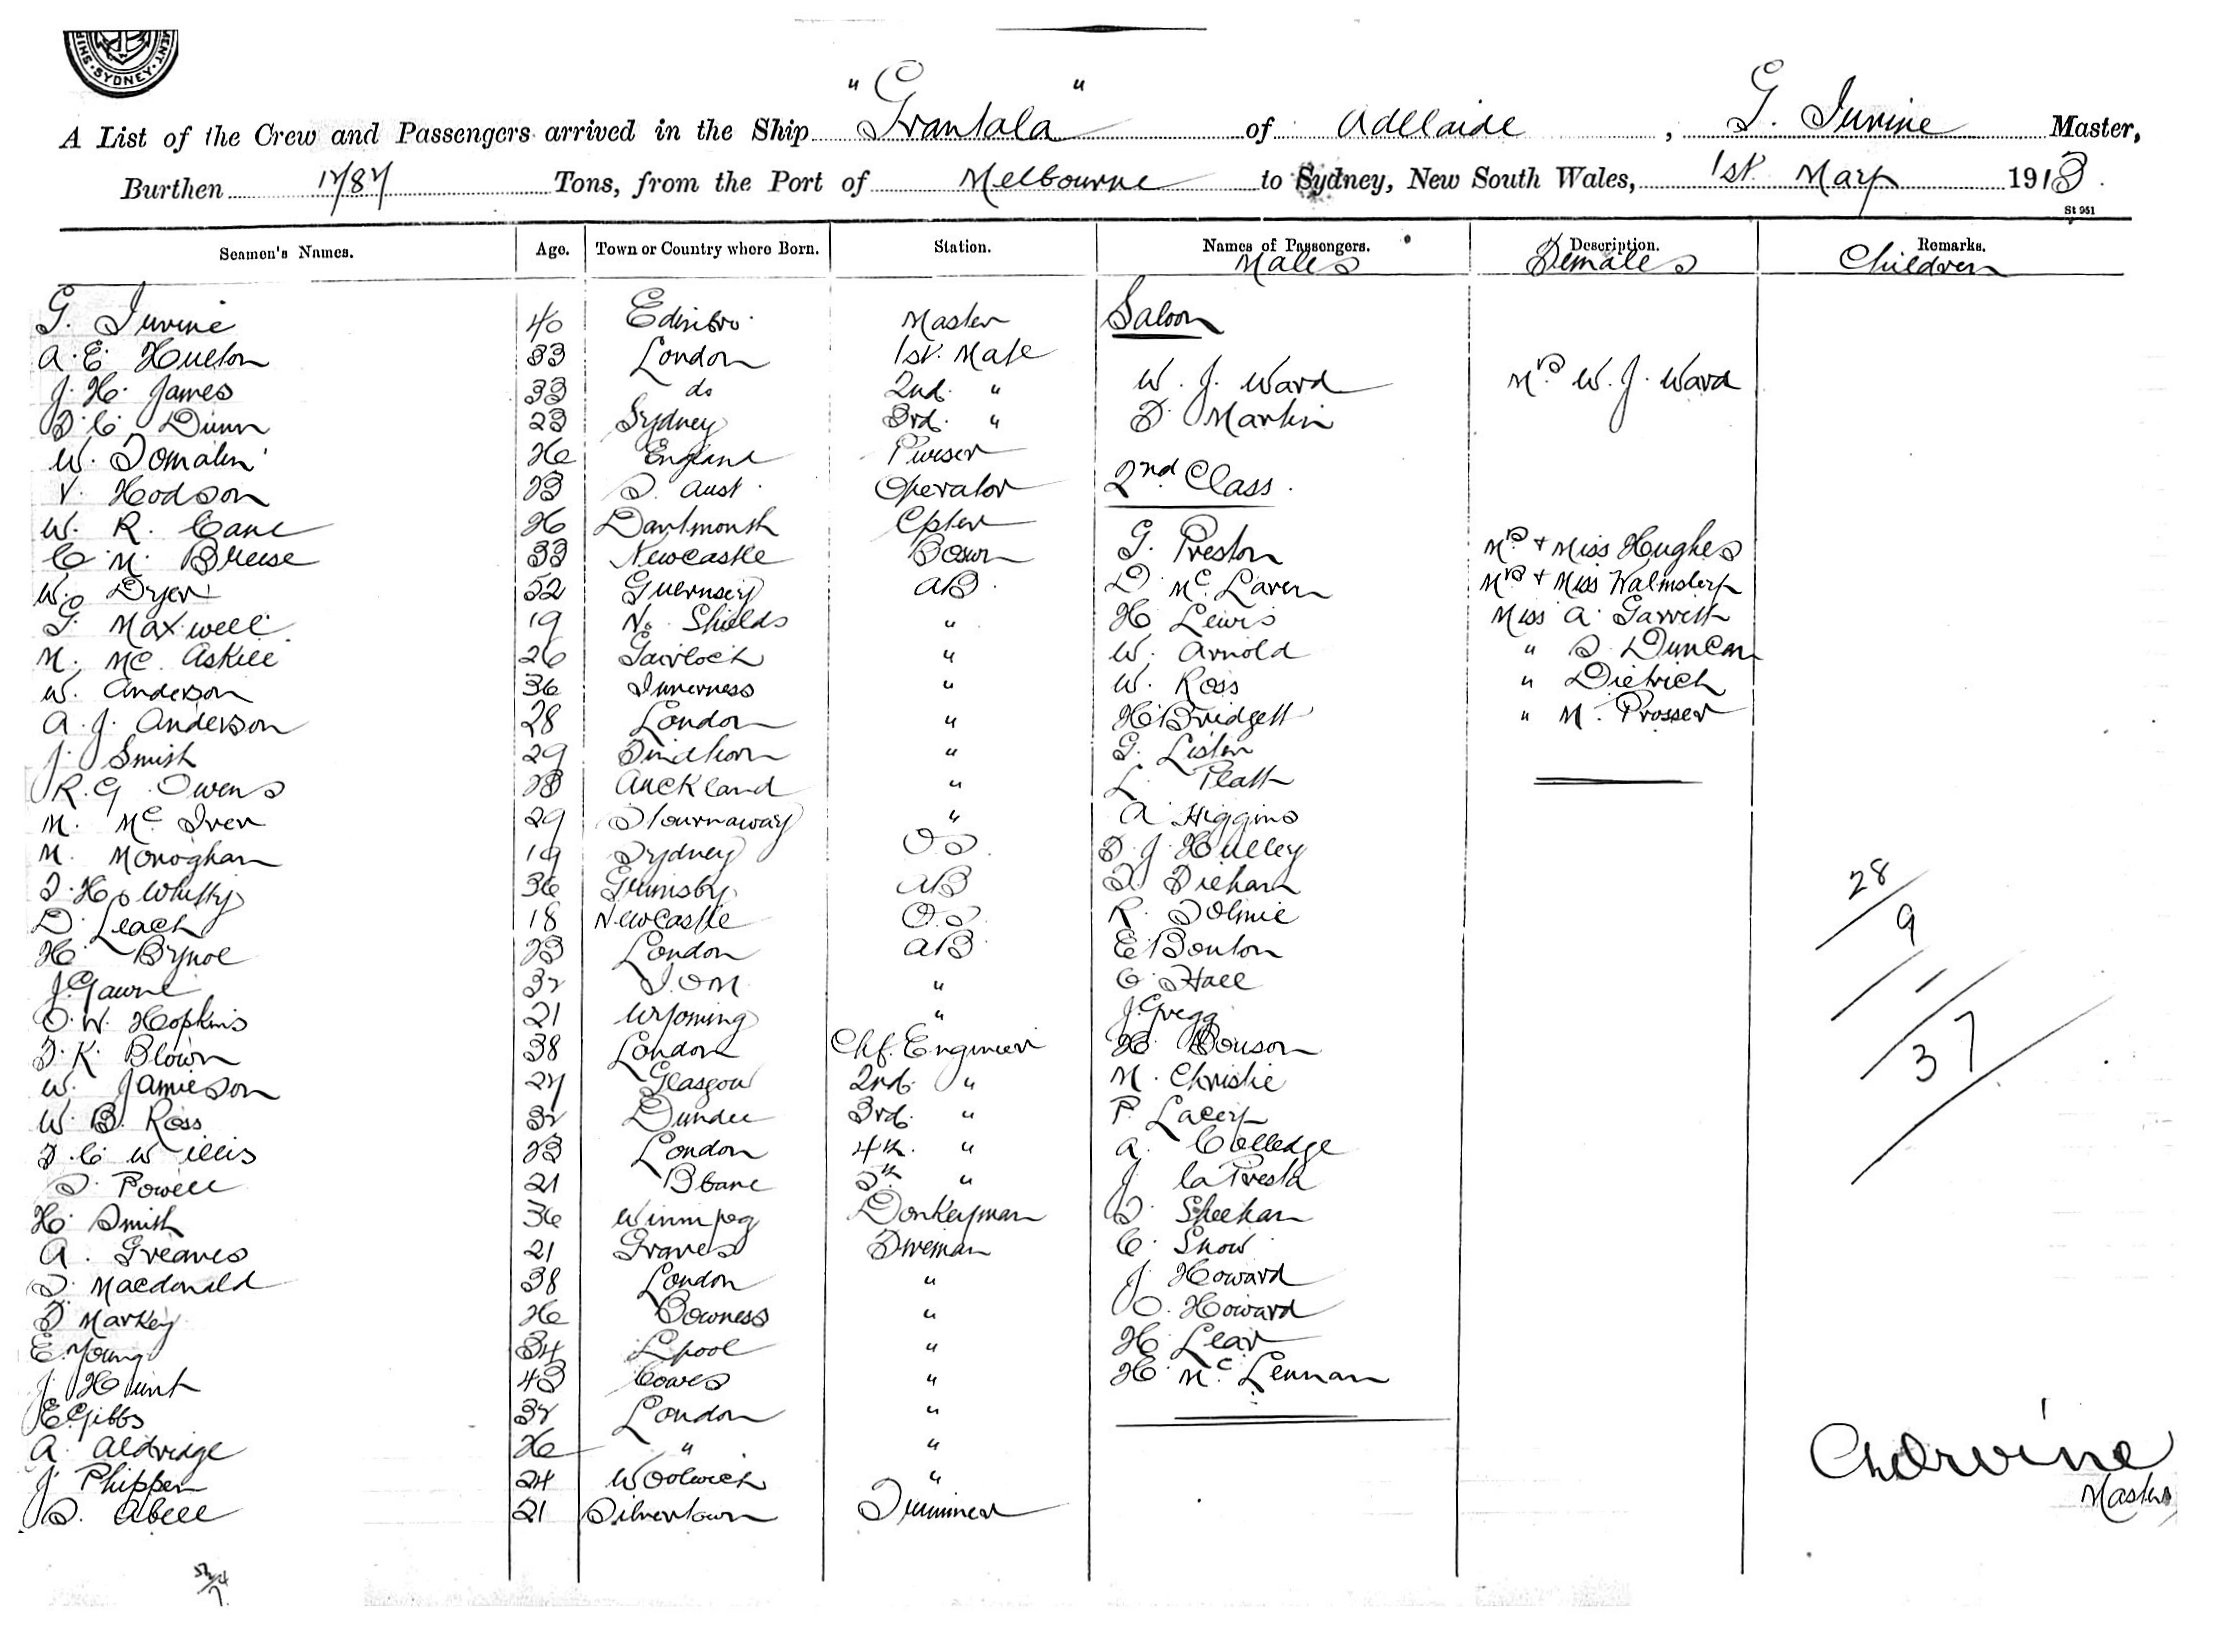 SYDNEY
"Grantala"
A List of the Crew and Passengers arrived in the Ship Grantala of Adelaide, G. Irvine Master,
Burthen 1787 Tons, from the Port of Melbourne to Sydney, New South Wales, 1st May 1913.
St 951
Seamen's Names. Age. Town or Country where Born. Station. Names of Passengers. Description. Remarks.
Males Females Children
G. Irvine 40 Edinbro' Master Saloon
A. E. Hulton 33 London 1st. Mate
J. H. James 33 do 2nd. " W. J. Ward Mrs. W. J. Ward
F. C. Dunn 23 Sydney 3rd. " F. Martin
W. Tomalin 26 England Purser
V. Hodson 23 S. Aust. Operator 2nd. Class.
W. R. Cane 26 Dartmouth Cpter
C. M. Breese 33 Newcastle Bosun G. Preston Mrs + Miss Hughes
W. Dyer 52 Guernsey AB. D. McLaren Mrs + Miss Walmsley
G. Maxwell 19 No. Shields " H. Lewis Miss A. Garrett
M. McAskill 26 Gairloch " W. Arnold " S. Duncan
W. Anderson 36 Inverness " W. Ross " Dietrich
A. J. Anderson 28 London " H. Bridgett " M. Prosser
J. Smith 29 Findhorn " G. Lister
R. G. Owens 23 Auckland " L. Platt
M. McIver 29 Stournaway " A. Higgins
M. Monoghan 19 Sydney OS. F. J. Hulley
T. H. Whitty 36 Grimsby AB
D. Leach 18 Newcastle OS. R. Tolmie
H. Brynoe 23 London AB E. Bonton
J. Gawne 32 I.O.M. " C. Hall
O. W. Hopkins 21 Wyoming " J. Gregg
F. K. Blown 38 London Chf. Engineer
W. Jamieson 27 Glasgow 2nd. " M. Christie
W. B. Ross 32 Dundee 3rd. " P. Lacey
F. C. Willis 23 London 4th. " A. Colledge
S. Powell 21 Bbane 5th. " J. la Presta
H. Smith 36 Winnipeg Donkeyman Sheehan
A. Greaves 21 Graves Fireman C. Snow
S. Macdonald 38 London " J. Howard
F. Markey 26 Bowness " O. Howard
E. Young 34 Lpool " H. Lear
J. Hunt 43 Cowes " H. McLennan
E. Gibbs 32 London "
A. Aldridge 26 " "
J. Phippen 24 Woolwich "
S. Abell 21 Silvertown Trimmer
28
9
37
Irvine
Master